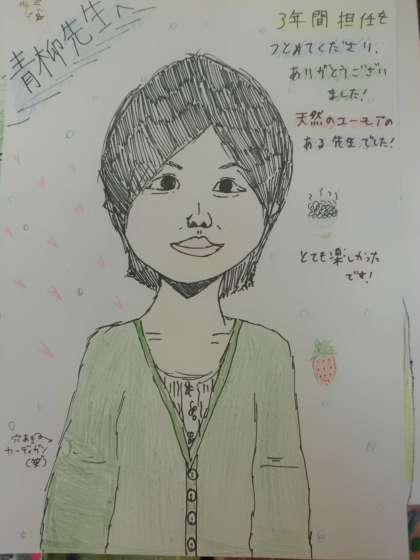 青柳先生へ
3年間担任を
つとめてくださり、
ありがとうござい
ました!
天然のユーモアの
ある先生でした!
とても楽しかった
です!
穴あきの
カーディガン
(笑)